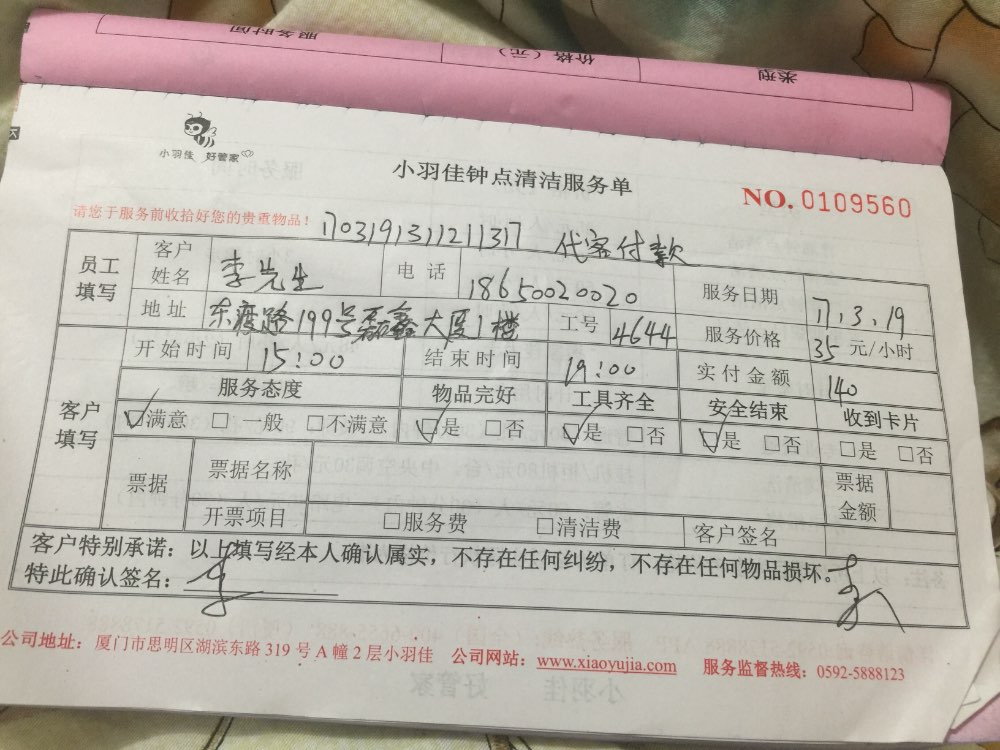 服务时间 价格（元） 类型
小羽佳 好管家
小羽佳钟点清洁服务单
NO. 0109560
请您于服务前收拾好您的贵重物品！
170319131121137 代客付款
员工填写 客户姓名 李先生 电话 18650020020 服务日期 17.3.19
地址 东渡路199号磊鑫大厦1楼 工号 4644 服务价格 35 元/小时
客户填写 开始时间 15:00 结束时间 19:00 实付金额 140
服务态度 物品完好 工具齐全 安全结束 收到卡片
☑满意 □一般 □不满意 ☑是 □否 ☑是 □否 ☑是 □否 □是 □否
票据 票据名称 票据金额
开票项目 □服务费 □清洁费 客户签名
客户特别承诺：以上填写经本人确认属实，不存在任何纠纷，不存在任何物品损坏。
特此确认签名：
公司地址：厦门市思明区湖滨东路 319 号 A 幢 2 层小羽佳 公司网站：www.xiaoyujia.com 服务监督热线：0592-5888123